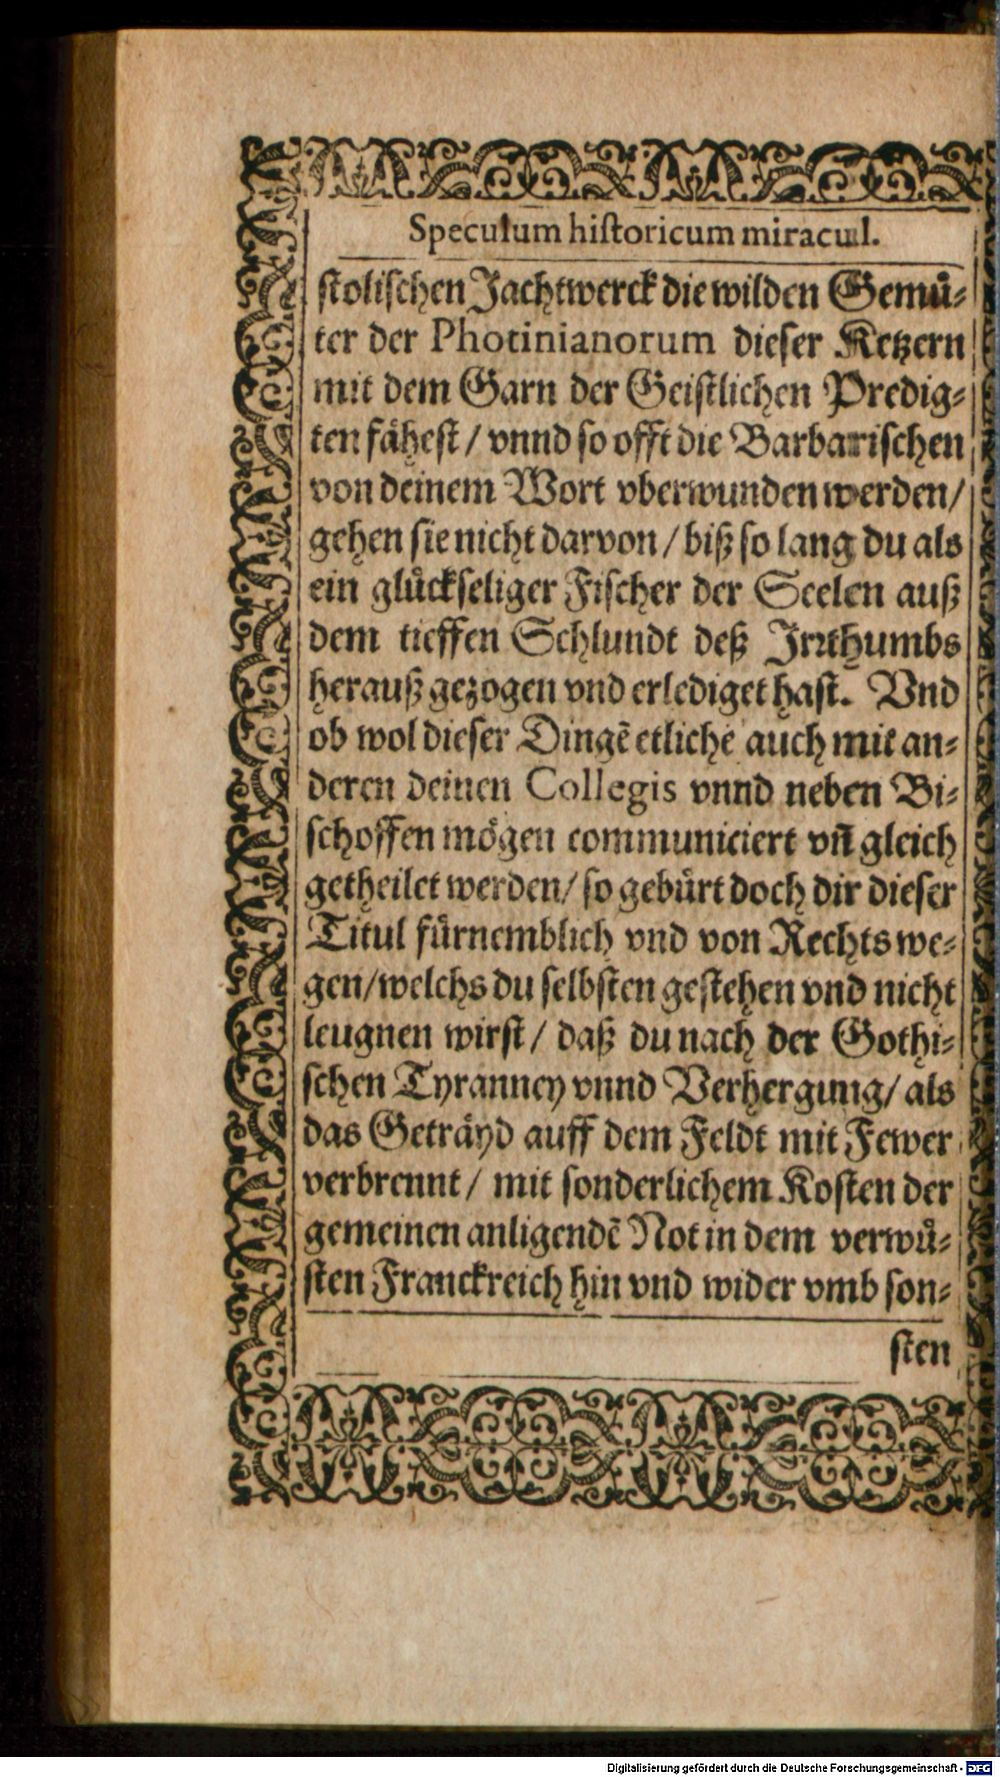 Speculum historicum miracul.
stolischen Jachtwerck die wilden Gemuͤ-
ter der Photinianorum dieser Ketzern
mit dem Garn der Geistlichen Predig-
ten fähest / vnnd so offt die Barbarischen
von deinem Wort vberwunden werden /
gehen sie nicht darvon / biß so lang du als
ein gluͤckseliger Fischer der Seelen auß
dem tieffen Schlundt deß Irrthumbs
herauß gezogen vnd erlediget hast. Vnd
ob wol dieser Dingē etliche auch mit an-
deren deinen Collegis vnnd neben Bi-
schoffen mögen communiciert vn̄ gleich
getheilet werden / so gebuͤrt doch dir dieser
Titul fuͤrnemblich vnd von Rechts we-
gen / welchs du selbsten gestehen vnd nicht
leugnen wirst / daß du nach der Gothi-
schen Tyranney vnnd Verhergung / als
das Geträyd auff dem Feldt mit Fewer
verbrennt / mit sonderlichem Kosten der
gemeinen anligendē Not in dem verwuͤ-
sten Franckreich hin vnd wider vmb son-
sten
Digitalisierung gefördert durch die Deutsche Forschungsgemeinschaft - DFG